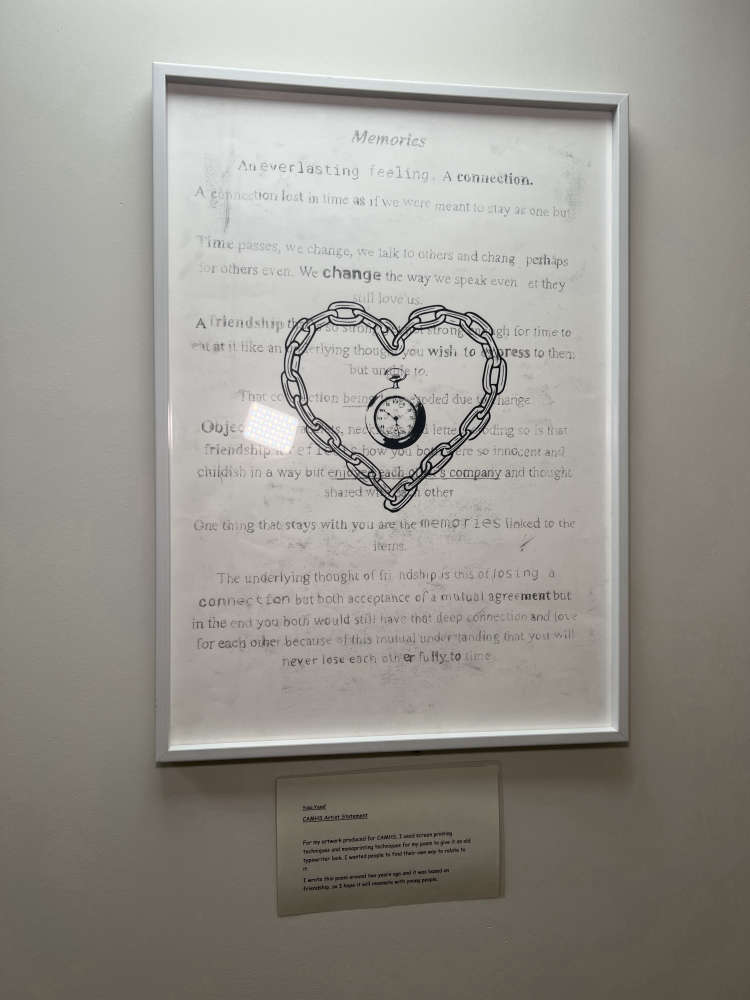 Memories
An everlasting feeling. A connection.
A connection lost in time as if we were meant to stay as one but
Time passes, we change, we talk to others and chang perhaps
for others even. We change the way we speak even et they
still love us.
A friendship so strong strong for time to
eat at it like an underlying thought you wish to express to them
but unable to.
That connection being due to change
how you both were so innocent and
childish in a way but enjoyed each other's company and thought
shared with each other
One thing that stays with you are the memories linked to the
items.
The underlying thought of fri ndship is this of losing a
connection but both acceptance of a mutual agreement but
in the end you both would still have that deep connection and love
for each other because of this mutual understanding that you will
never lose each other fully to time
CAMHS Artist Statement
For my artwork produced for CAMHS, I used screen printing
techniques and monoprinting techniques for my poem to give it an old
typewriter look. I wanted people to find their own way to relate to
it.
I wrote this poem around two years ago and it was based on
friendship, so I hope it will resonate with young people.